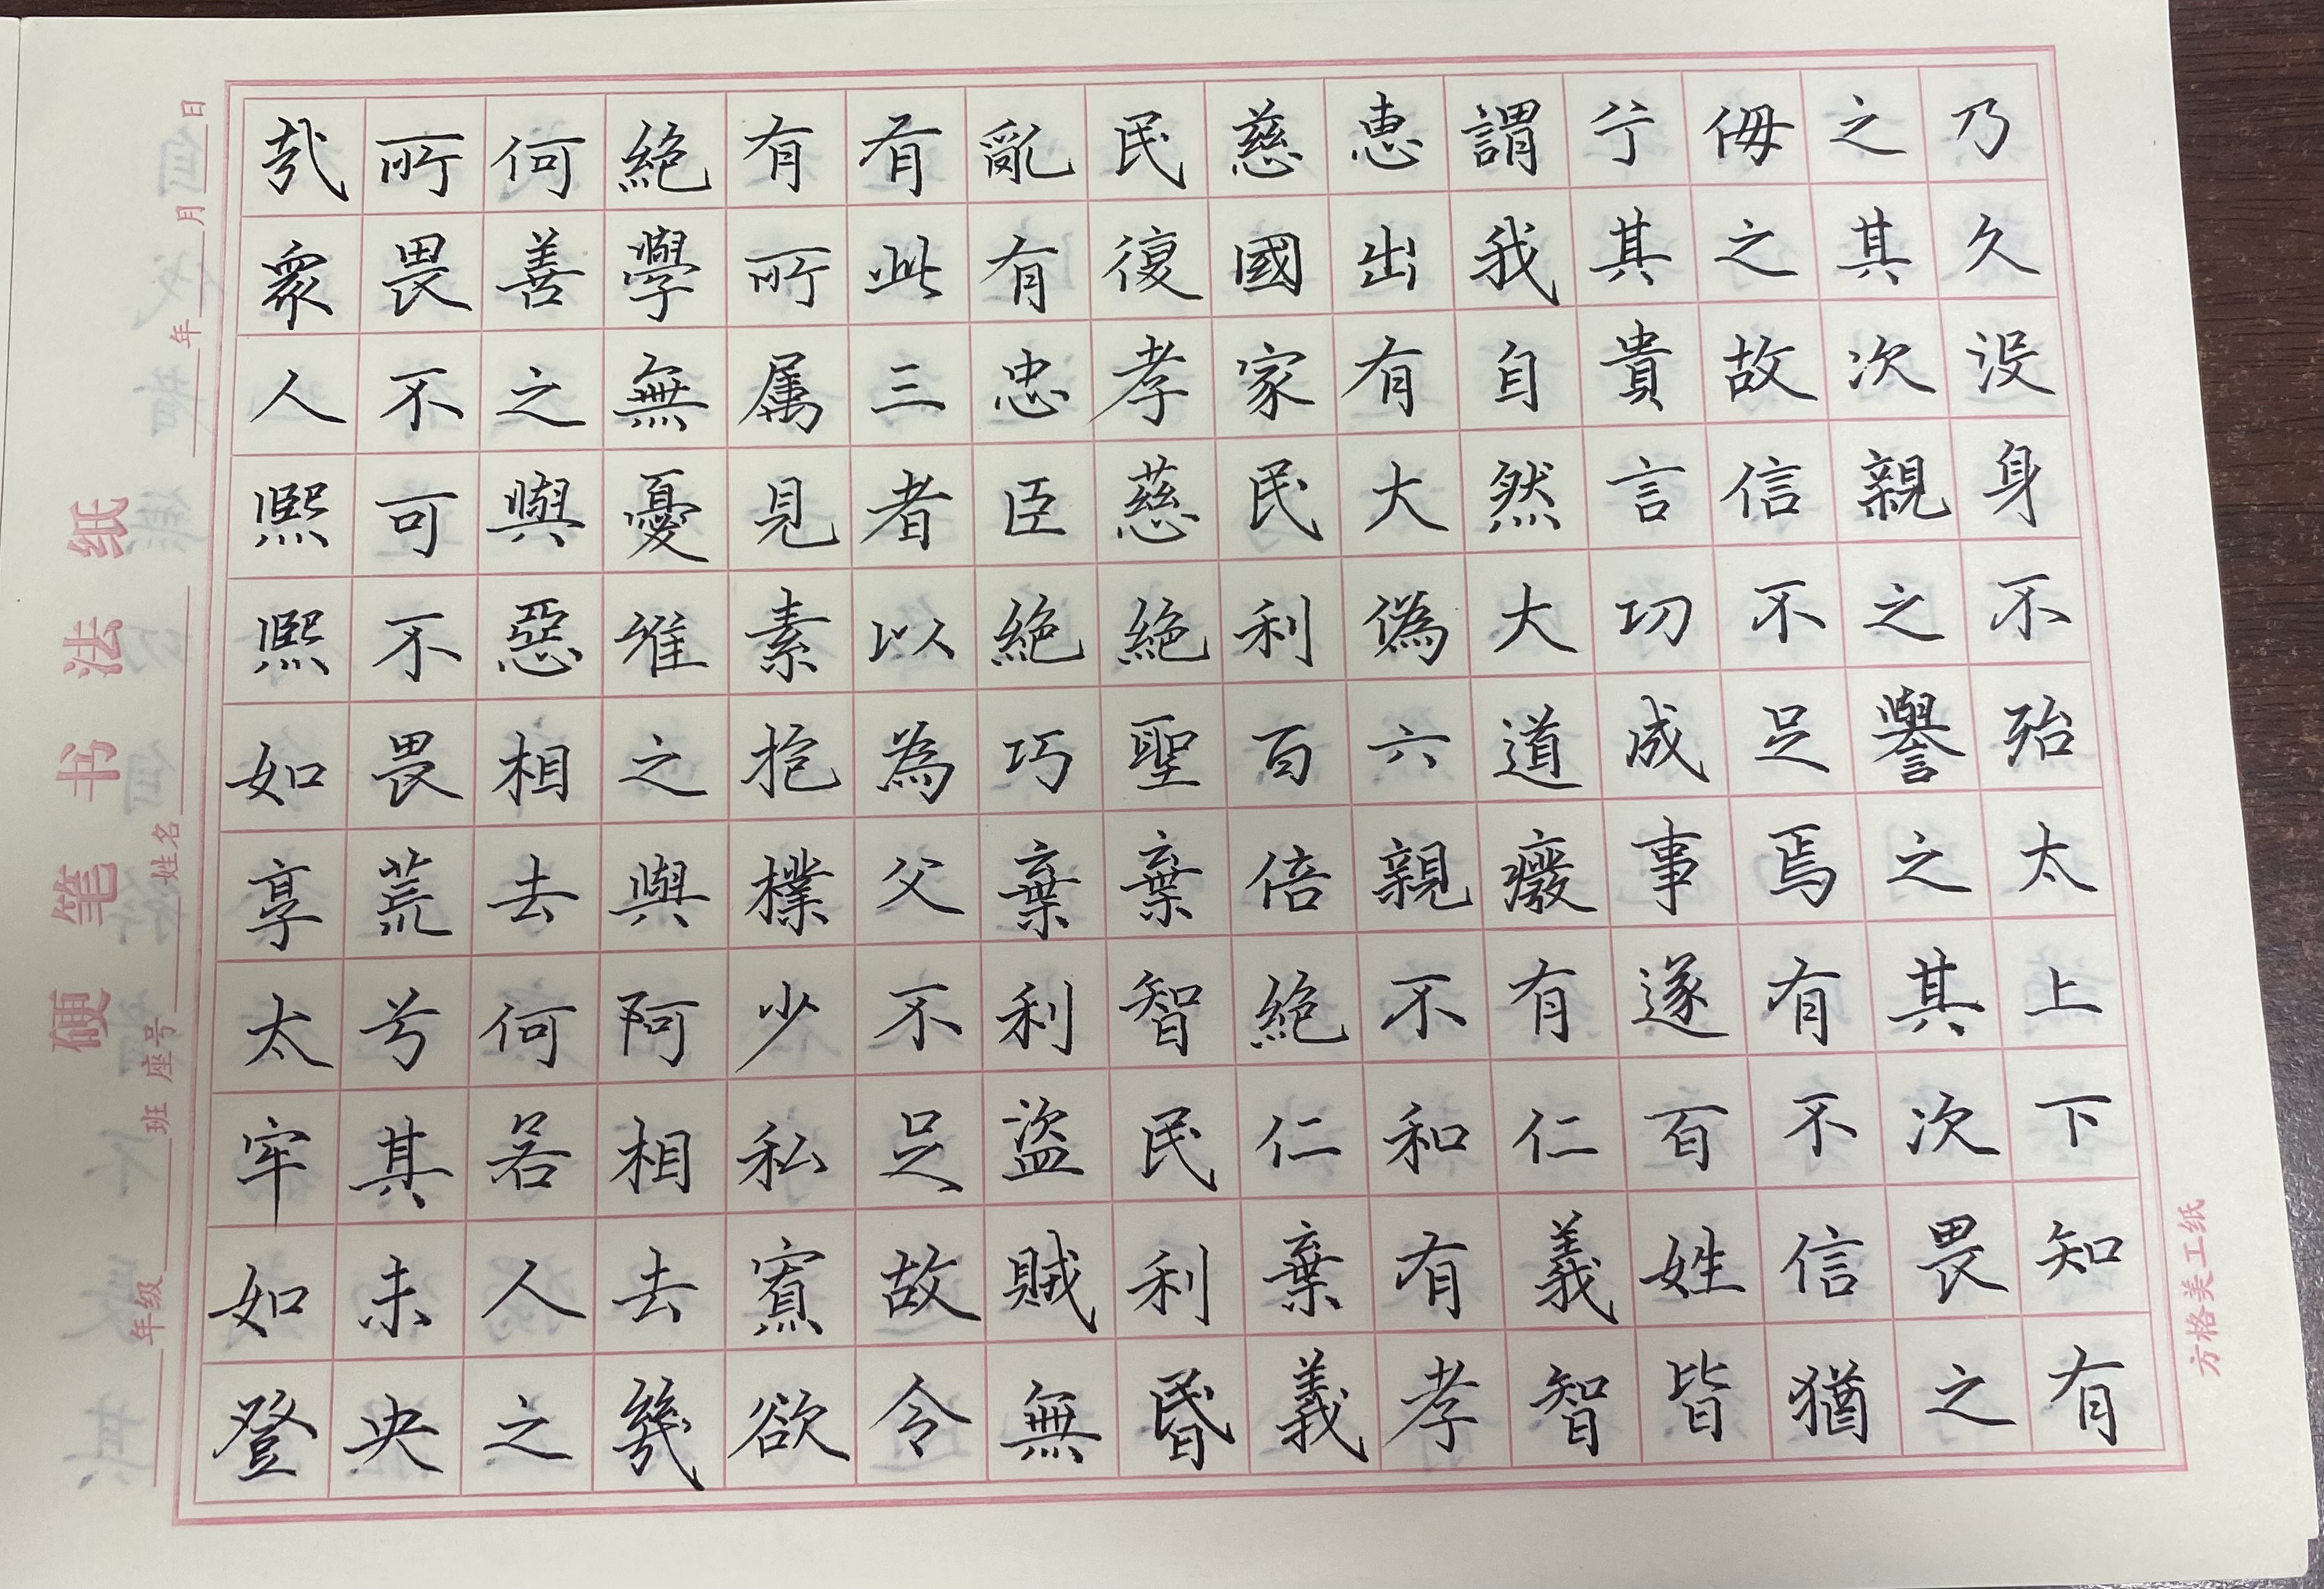 乃久没身不殆太上下知有
之其次親之譽之其次畏之
侮之故信不足焉有不信猶
兮其貴言功成事遂百姓皆
謂我自然大道廢有仁義智
惠出有大偽六親不和有孝
慈國家民利百倍絕仁棄義
民復孝慈絕聖棄智民利昬
亂有忠臣絕巧棄利盜賊無
有此三者以為父不足故令
有所属見素抱樸少私寡欲
絕學無憂唯之與阿相去幾
何善之與惡相去何若人之
所畏不可不畏荒兮其未央
哉衆人熙熙如享太牢如登
硬笔书法纸
年级 班 座号 姓名 年 月 日
方格美工纸